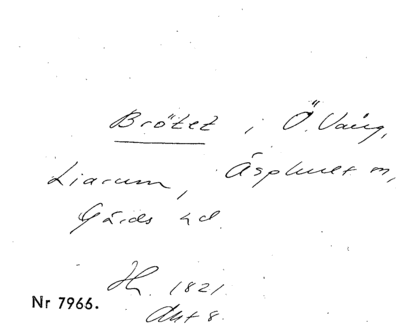 Brötet i Ö. Vång,
Liarum, Äsphult m,
Gärds hd.
1821
Akt 8.
Nr 7966.